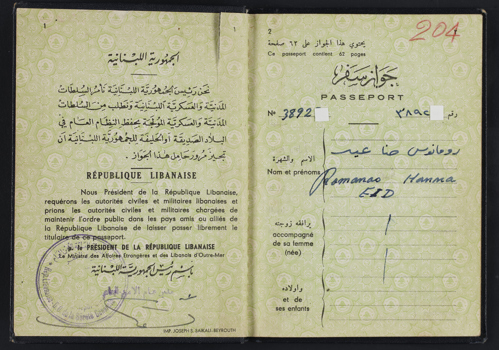 1
الجمهورية اللبنانية
نحن رئيس الجمهورية اللبنانية نأمر السلطات
المدنية والعسكرية اللبنانية ونطلب من السلطات
المدنية والعسكرية المولجة بحفظ النظام العام في
البلاد الصديقة أو الحليفة للجمهورية اللبنانية أن
تجيز مرور حامل هذا الجواز.
RÉPUBLIQUE LIBANAISE
Nous Président de la République Libanaise,
requérons les autorités civiles et militaires libanaises et
prions les autorités civiles et militaires chargées de
maintenir l'ordre public dans les pays amis ou alliés de
la République Libanaise de laisser passer librement le
titulaire de ce passeport.
p. le PRÉSIDENT DE LA RÉPUBLIQUE LIBANAISE
Le Ministre des Affaires Étrangères et des Libanais d'Outre-Mer
باسم رئيس الجمهورية اللبنانية
IMP. JOSEPH S. SAIKALI-BEYROUTH
2
204
يحتوي هذا الجواز على ٦٢ صفحة
Ce passeport contient 62 pages
جواز سفر
PASSEPORT
Nº 3892
رقم ٣٨٩٢
الاسم والشهرة رومانوس حنا عيد
Nom et prénoms Romanos Hanna
EID
يرافقه زوجته
accompagné
de sa femme
(née)
واولاده
et de
ses enfants